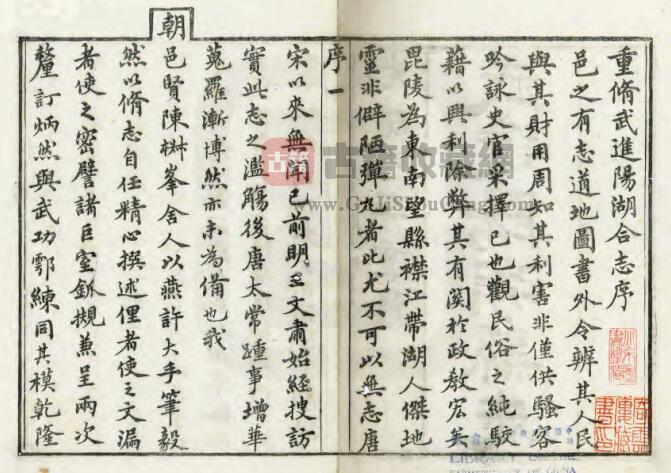 重脩武進陽湖合志序
邑之有志道地圖書外令辨其人民
與其財用周知其利害非僅供騷客
吟詠史官采擇已也觀民俗之純駁
藉以興利除弊其有關於政教宏矣
毘陵為東南望縣襟江帶湖人傑地
靈非僻陋彈丸者此尤不可以無志唐
序一
宋以來無聞已前明王文肅始經搜訪
實此志之濫觴後唐太常踵事增華
蒐羅漸博然亦未為備也我
朝邑賢陳椒峯舍人以燕許大手筆毅
然以脩志自任精心撰述俚者使之文漏
者使之密譬諸臣室釽摫兼呈兩次
釐訂炳然與武功鄠練同其模乾隆
古籍收藏網
LIBRARY